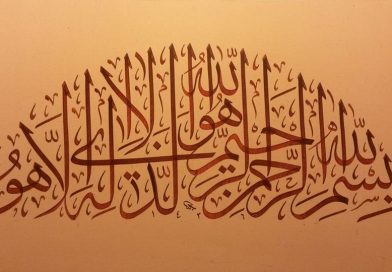 بسم الله الرحمن الرحيم هو الله الذي لا إله إلا هو